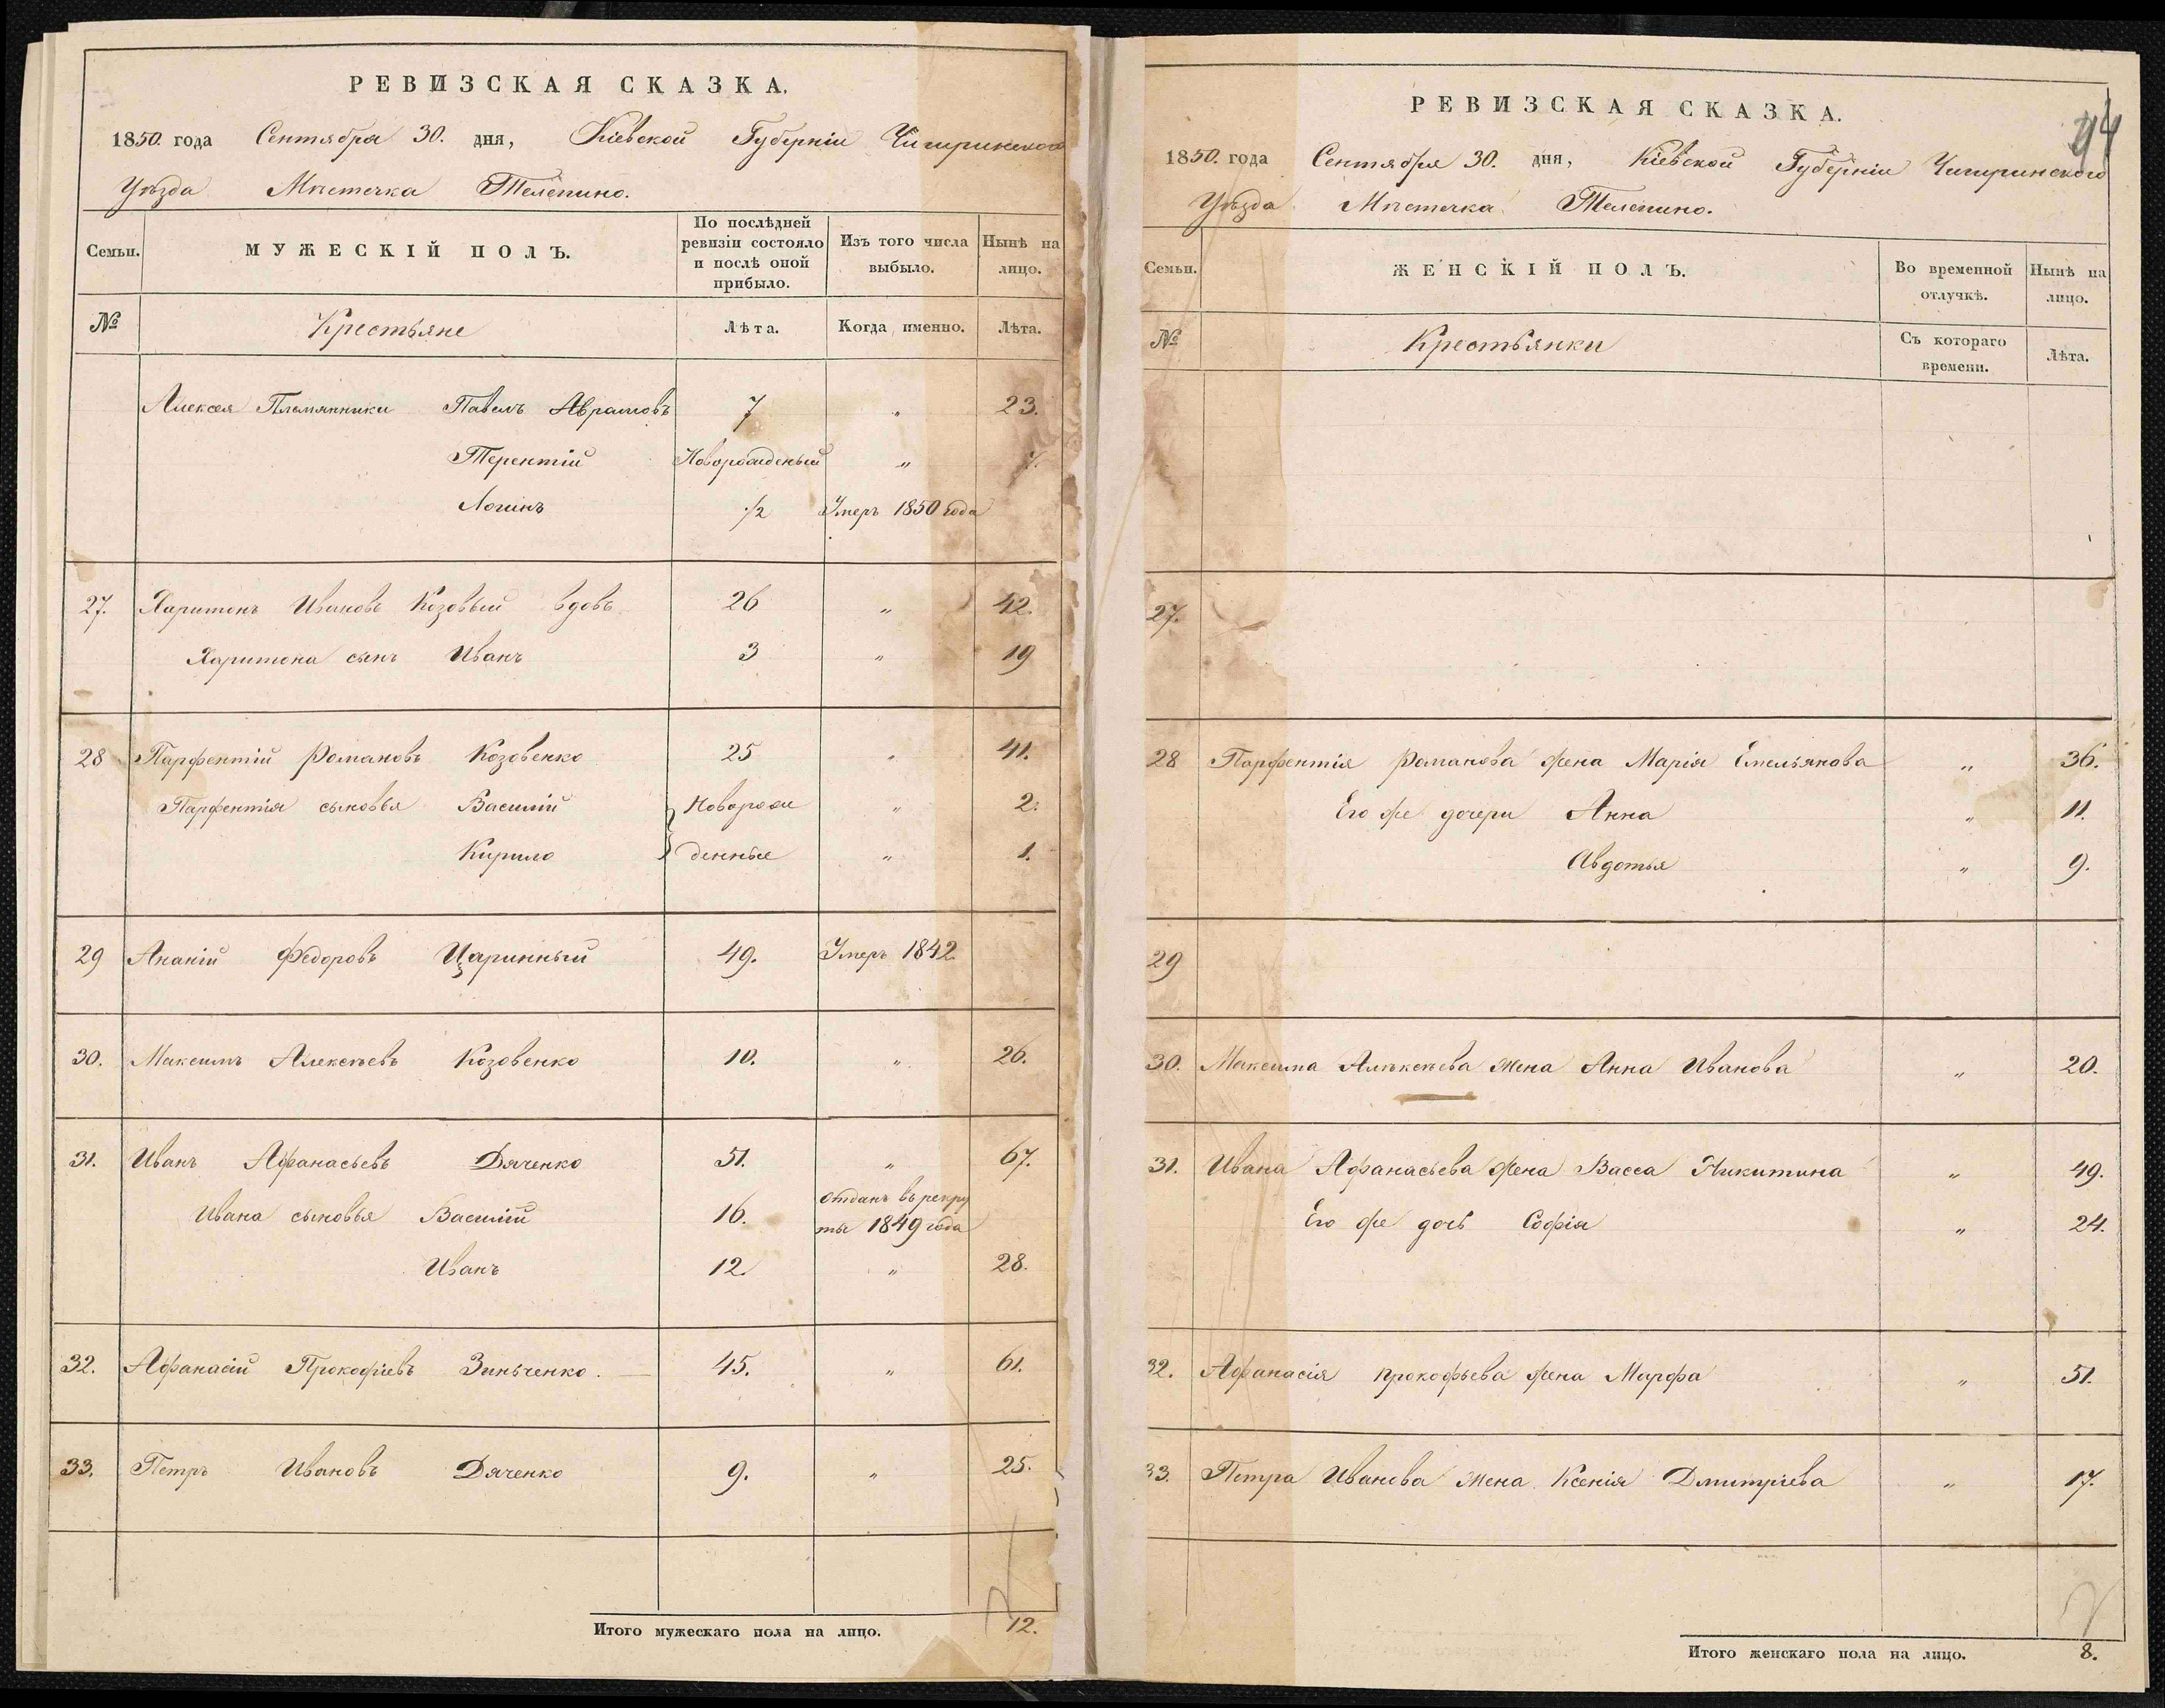 РЕВИЗСКАЯ СКАЗКА.
1850. года Сентября 30. дня, Кіевской Губерніи Чигиринского
Уѣзда Мѣстечка Телепино.
Семьи. МУЖЕСКІЙ ПОЛЪ. По послѣдней ревизіи состояло и послѣ оной прибыло. Изъ того числа выбыло. Нынѣ на лицо.
№ Крестьяне Лѣта. Когда именно. Лѣта.
Алексея Племянники Павелъ Аврамовъ 7 „ 23.
Терентій Новорожденый „
Логинъ ½ Умеръ 1850 года
27. Харитонъ Ивановъ Козовый вдовъ 26 „ 42.
Харитона сынъ Иванъ 3 „ 19
28 Парфентій Романовъ Козовенко 25 „ 41.
Парфентія сыновья Василій Новорож „ 2.
Кирило денные „ 1.
29 Ананій Федоровъ Царинный 49. Умеръ 1842.
30. Максимъ Алексѣевъ Козовенко 10. „ 26.
31. Иванъ Афанасьевъ Дяченко 51. „ 67.
Ивана сыновья Василій 16. отданъ въ рекру
ты 1849 года
Иванъ 12. „ 28.
32. Афанасій Прокофіевъ Зинченко. 45. „ 61.
33. Петръ Ивановъ Дяченко 9. „ 25.
Итого мужескаго пола на лицо. 12.
94
РЕВИЗСКАЯ СКАЗКА.
1850. года Сентября 30. дня, Кіевской Губерніи Чигиринского
Уѣзда Мѣстечка Телепино.
Семьи. ЖЕНСКІЙ ПОЛЪ. Во временной отлучкѣ. Нынѣ на лицо.
№ Крестьянки Съ котораго времени. Лѣта.
27.
28 Парфентія Романова жена Марія Емельянова „ 36.
Его же дочери Анна „ 11.
Авдотья „ 9.
29
30. Максима Алѣксѣева жена Анна Иванова „ 20.
31. Ивана Афанасьева жена Васса Никитина „ 49.
Его же дочь Софія „ 24.
32. Афанасія Прокофьева жена Марфа „ 51.
33. Петра Иванова жена Ксенія Дмитріева „ 17.
Итого женскаго пола на лицо. 8.